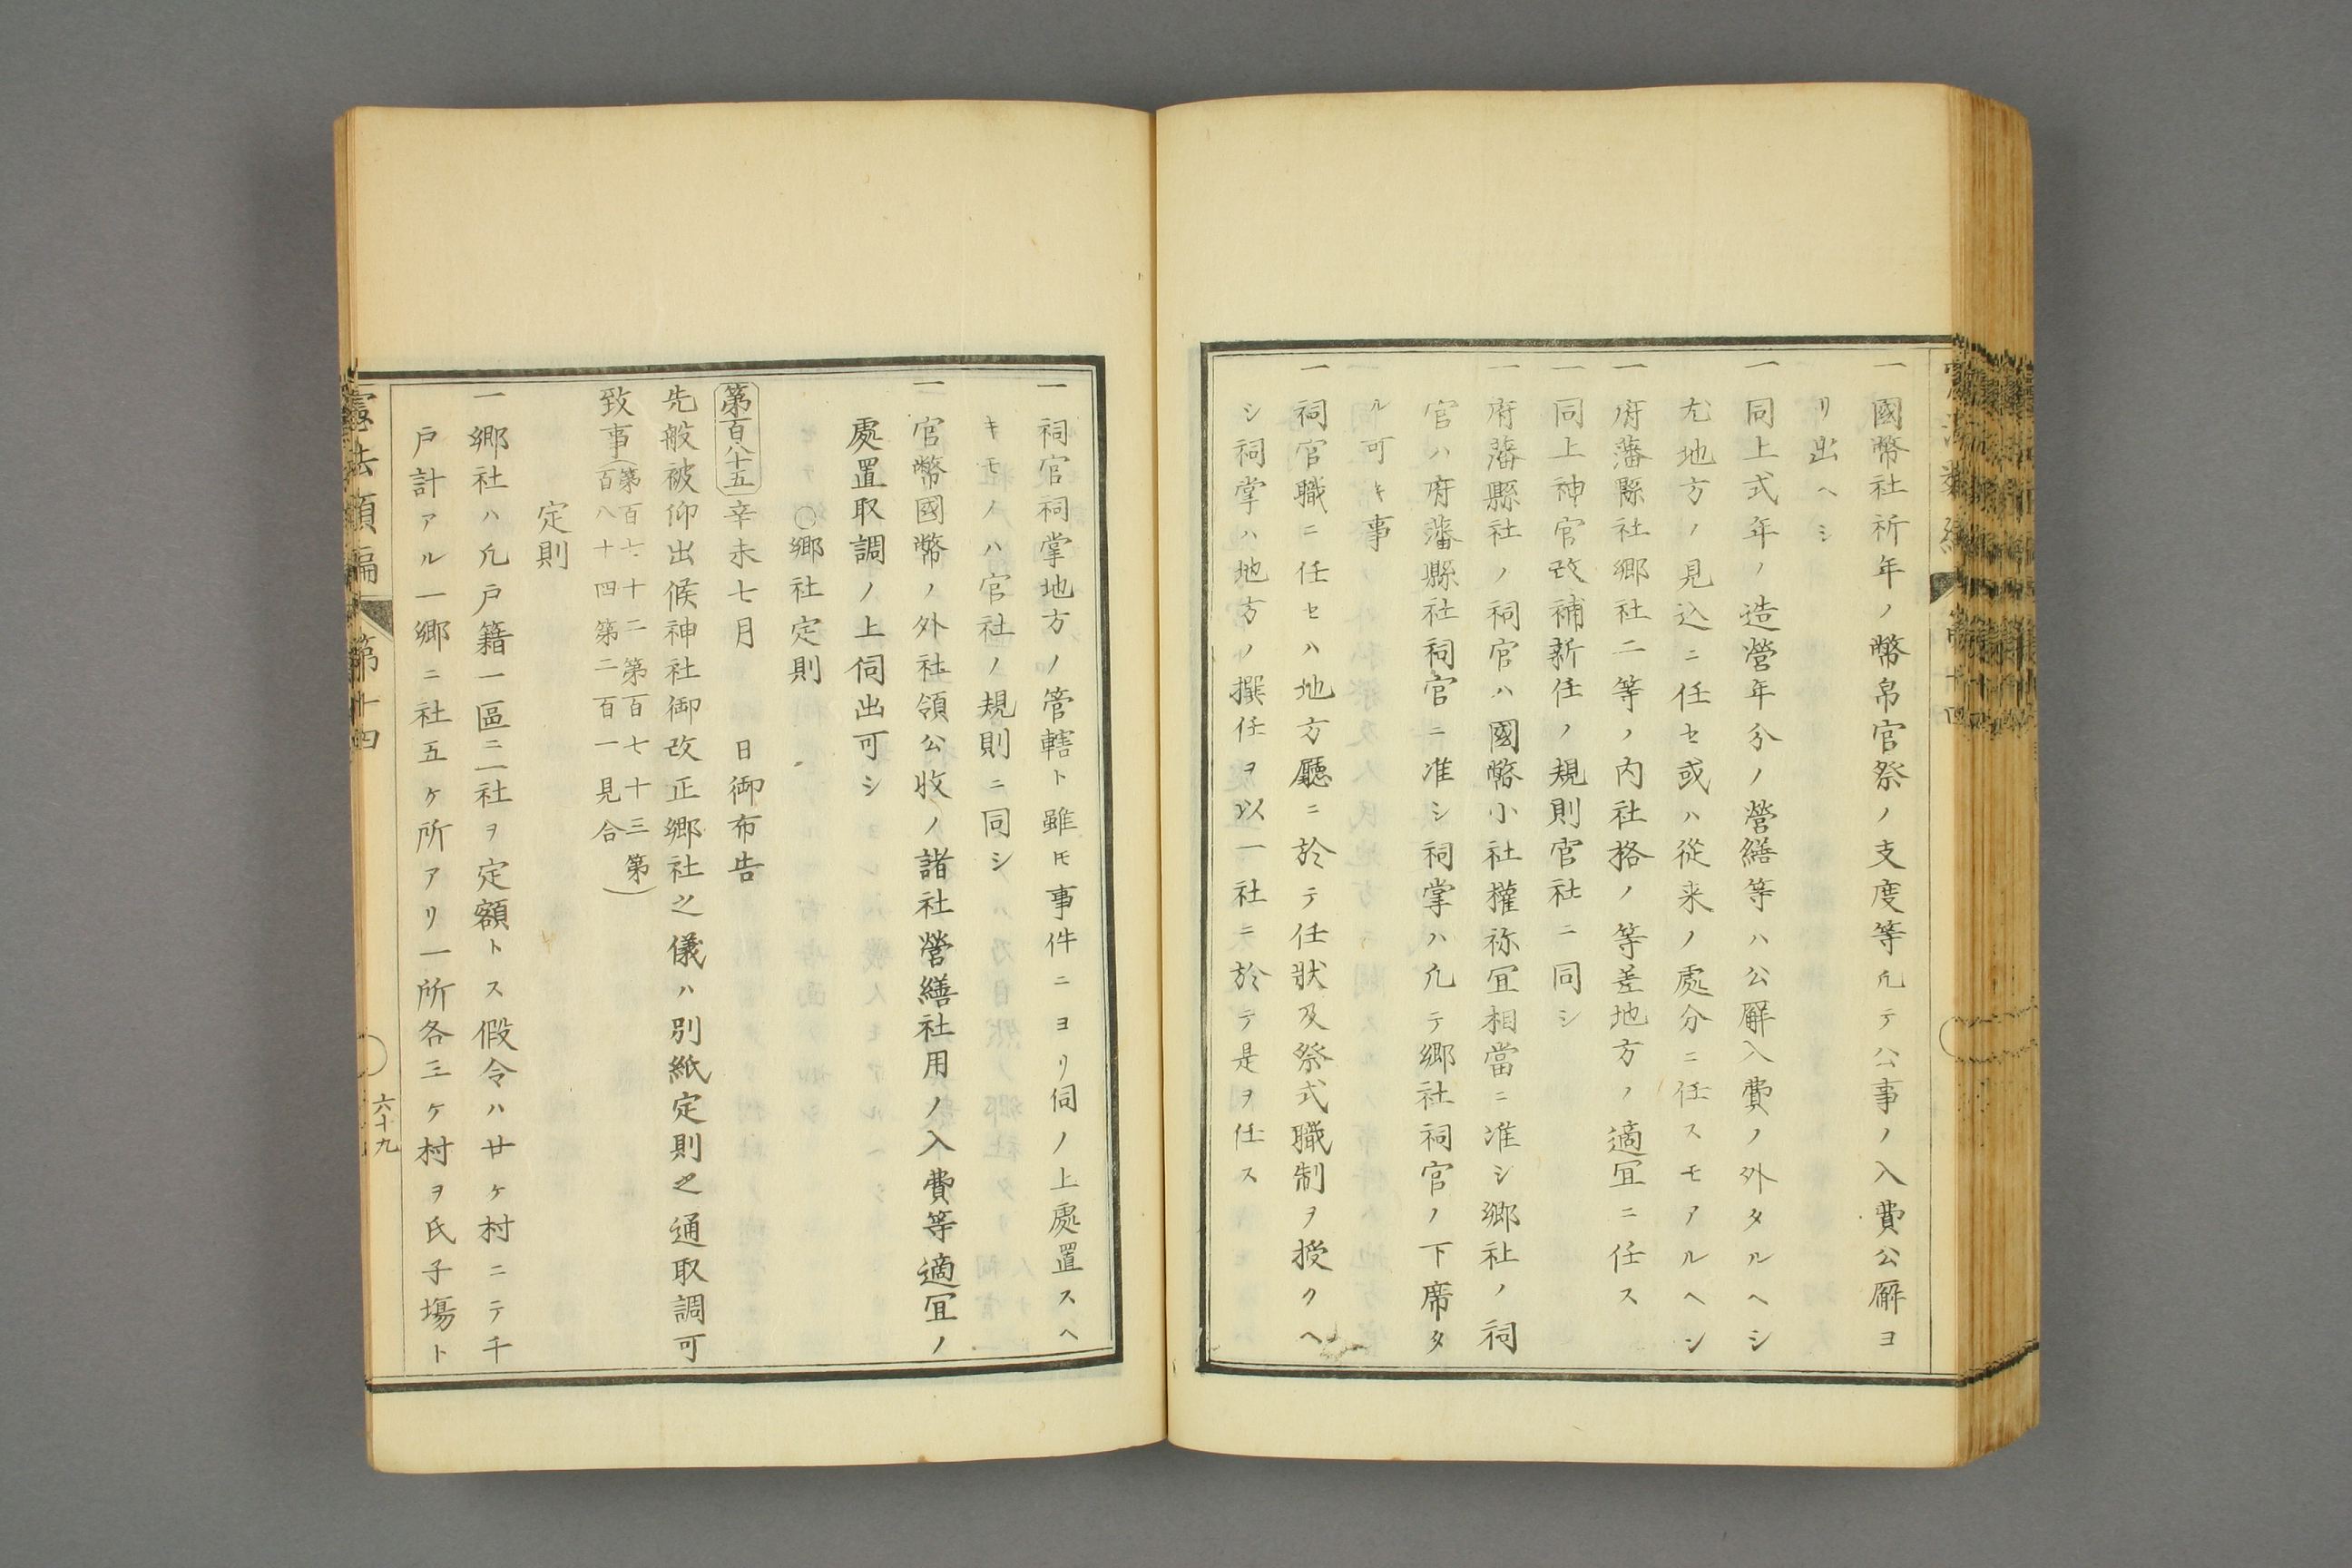 一國幣社祈年ノ幣帛官祭ノ支度等凢テ公事ノ入費公廨ヨ
リ出ヘシ
一同上式年ノ造營年分ノ營繕等ハ公廨入費ノ外タルヘシ
尤地方ノ見込ニ任セ或ハ從来ノ處分ニ任スモアルヘシ
一府藩縣社郷社二等ノ内社格ノ等差地方ノ適冝ニ任ス
一同上神官改補新任ノ規則官社ニ同シ
一府藩縣社ノ祠官ハ國幣小社權祢冝相當ニ准シ郷社ノ祠
官ハ府藩縣社祠官ニ准シ祠掌ハ凢テ郷社祠官ノ下席タ
ル可キ事
一祠官職ニ任セハ地方廳ニ於テ任狀及祭式職制ヲ授クヘ
シ祠掌ハ地方ノ撰任ヲ以一社ニ於テ是ヲ任ス
一祠官祠掌地方ノ管轄ト雖𪜈事件ニヨリ伺ノ上處置スヘ
キモノハ官社ノ規則ニ同シ
一官幣國幣ノ外社領公收ノ諸社營繕社用ノ入費等適冝ノ
處置取調ノ上伺出可シ
○郷社定則
第百八十五 辛未七月 日御布告
先般被仰出候神社御改正郷社之儀ハ別紙定則之通取調可
致事(第百七十二第百七十三第
百八十四第二百一見合)
定則
一郷社ハ凢戸籍一區ニ一社ヲ定額トス假令ハ廿ケ村ニテ千
戸計アル一郷ニ社五ケ所アリ一所各三ケ村ヲ氏子塲ト
憲法類編 第十四
六十九